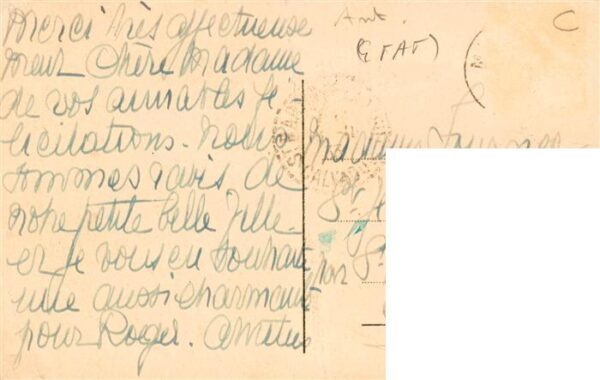 Merci très affectueuse
ment Chère Madame
de vos aimables fé-
licitations. Nous
sommes ravis de
notre petite belle fille
et je vous en souhaite
une aussi charmante
pour Roger. Amitiés
Ant.
(ETAT)
C
Madame
par St